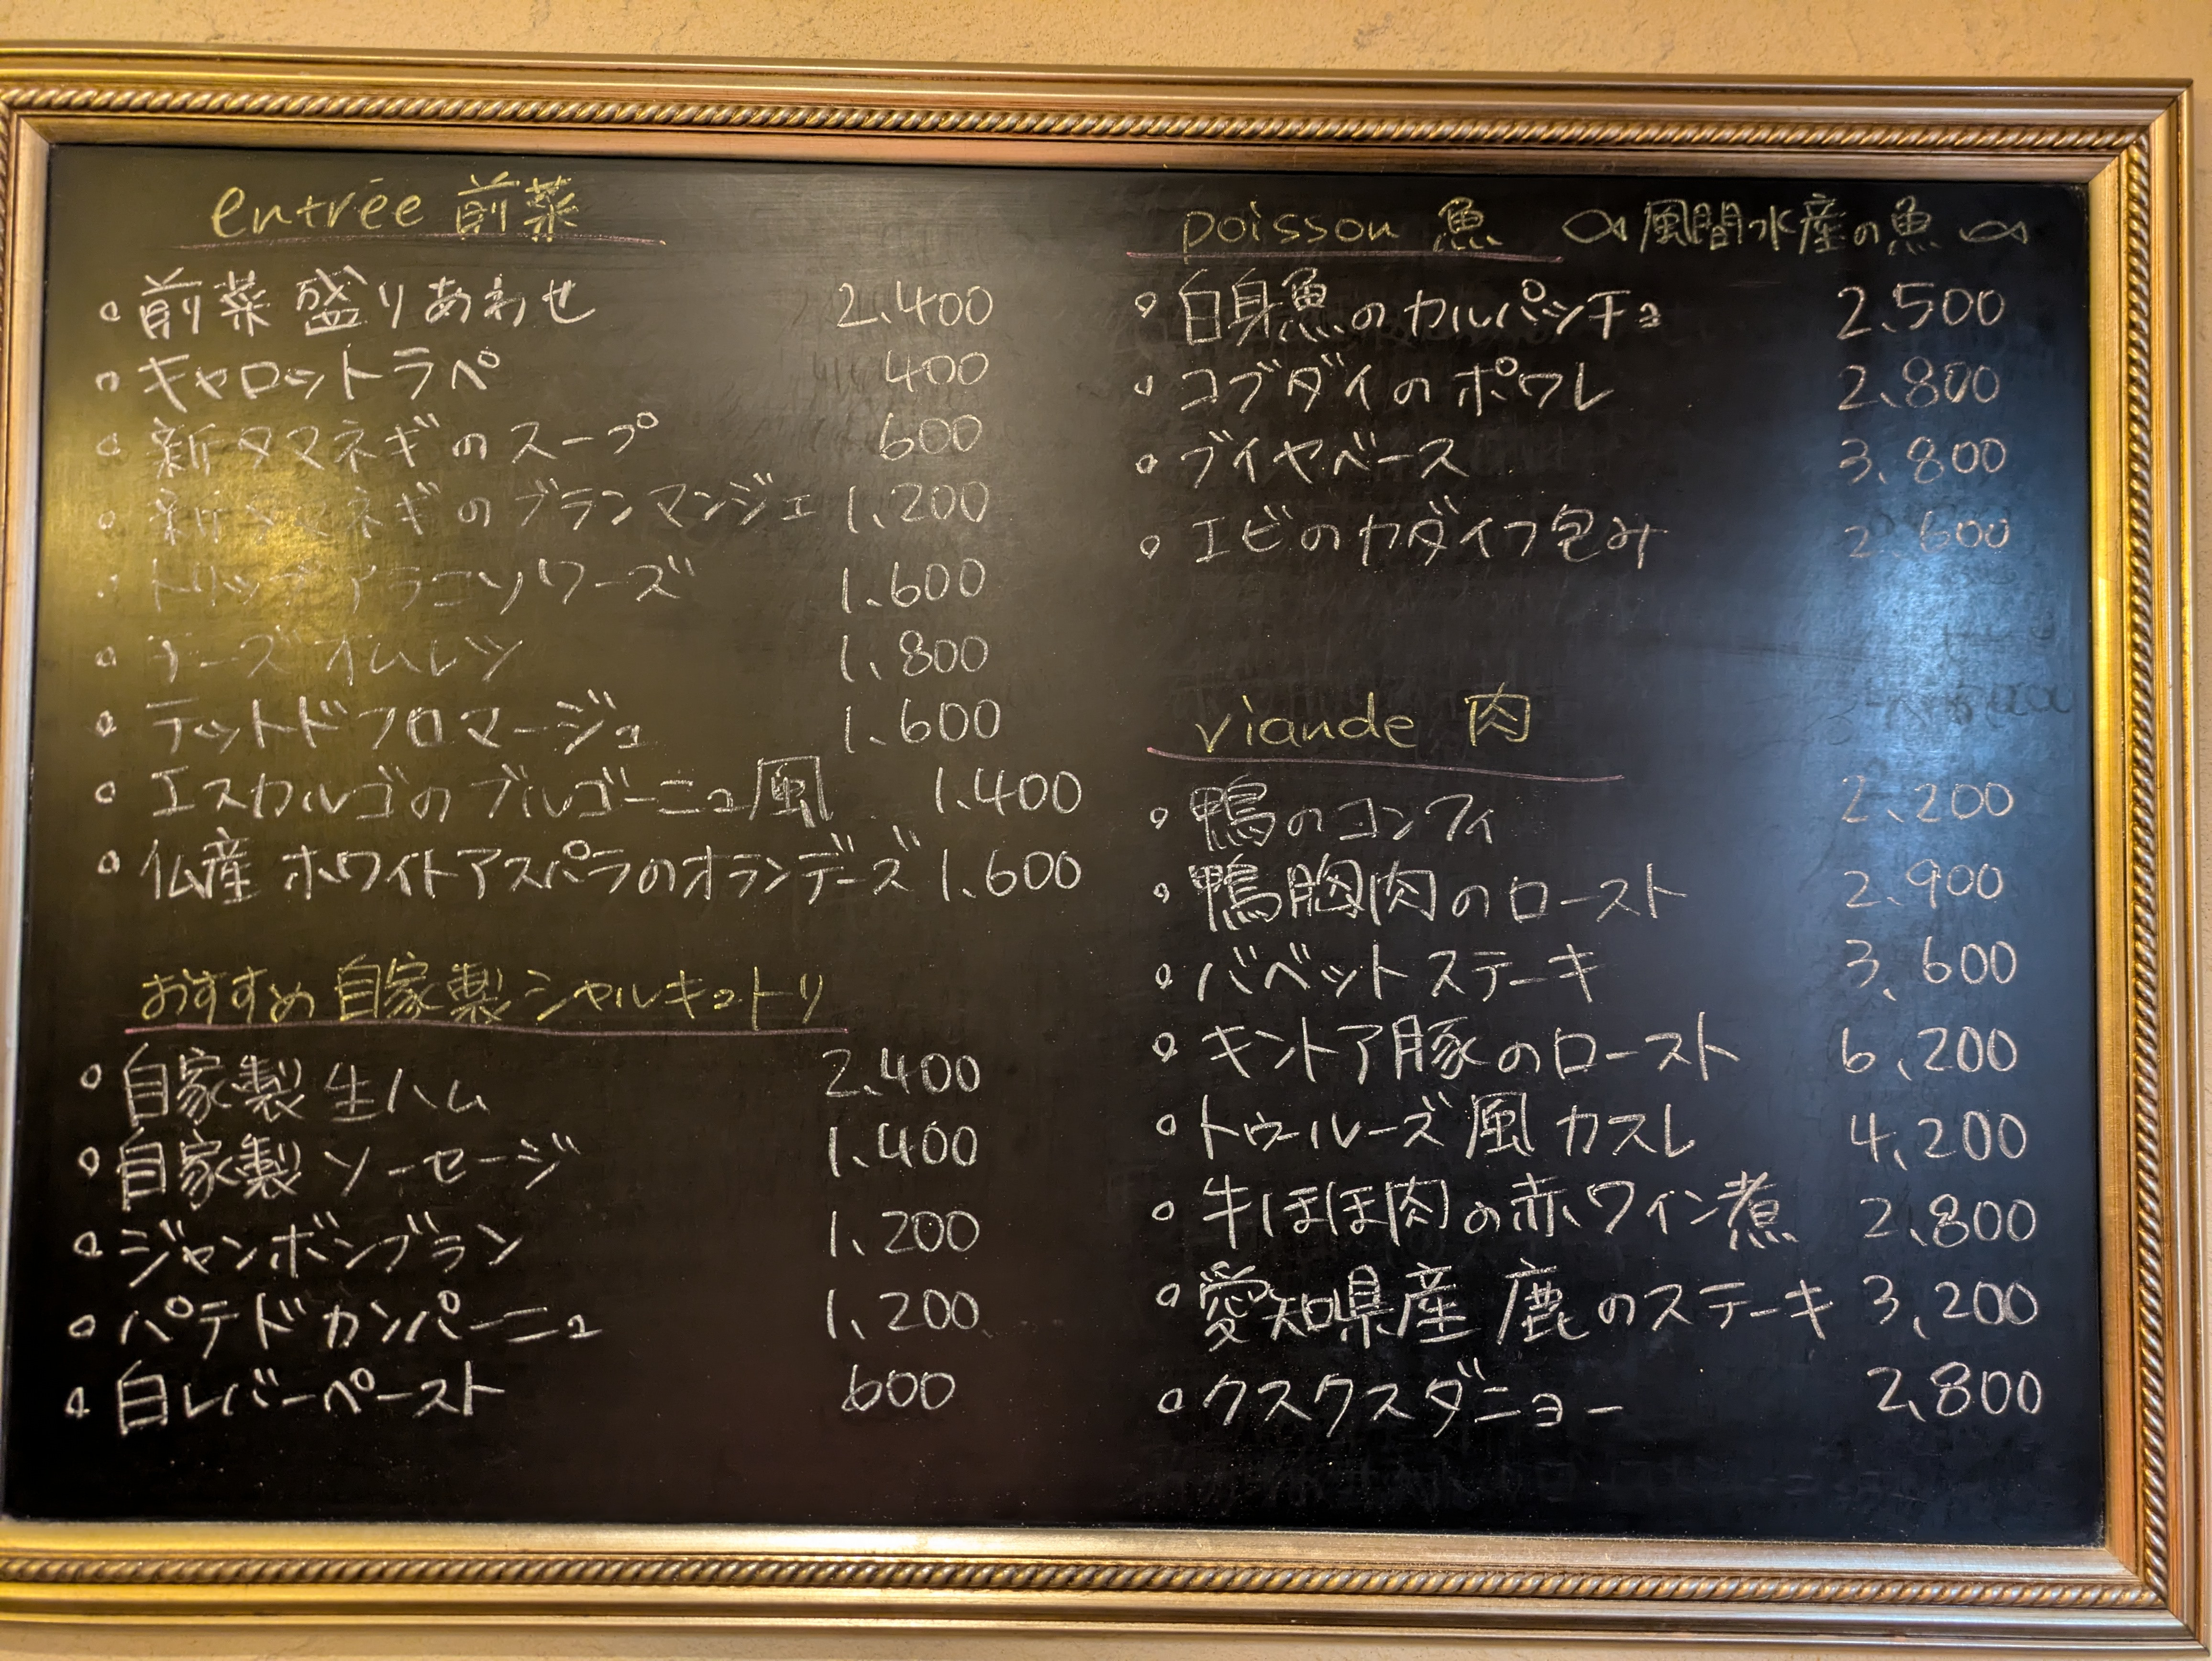 entrée 前菜
前菜 盛りあわせ 2.400
キャロットラペ 400
新タマネギのスープ 600
新タマネギのブランマンジェ 1.200
トリップアラニソワーズ 1.600
チーズオムレツ 1.800
テットドフロマージュ 1.600
エスカルゴのブルゴーニュ風 1.400
仏産 ホワイトアスパラのオランデーズ 1.600
おすすめ 自家製シャルキュトリ
自家製 生ハム 2.400
自家製 ソーセージ 1.400
ジャンボンブラン 1、200
パテドカンパーニュ 1、200
白レバーペースト 600
poisson 魚 風間水産の魚
白身魚のカルパッチョ 2.500
コブダイのポワレ 2.800
ブイヤベース 3.800
エビのカダイフ包み 2.600
viande 肉
鴨のコンフィ 2.200
鴨胸肉のロースト 2.900
バベットステーキ 3、600
キントア豚のロースト 6、200
トゥールーズ風 カスレ 4、200
牛ほほ肉の赤ワイン煮 2、800
愛知県産 鹿のステーキ 3、200
クスクスダニョー 2、800